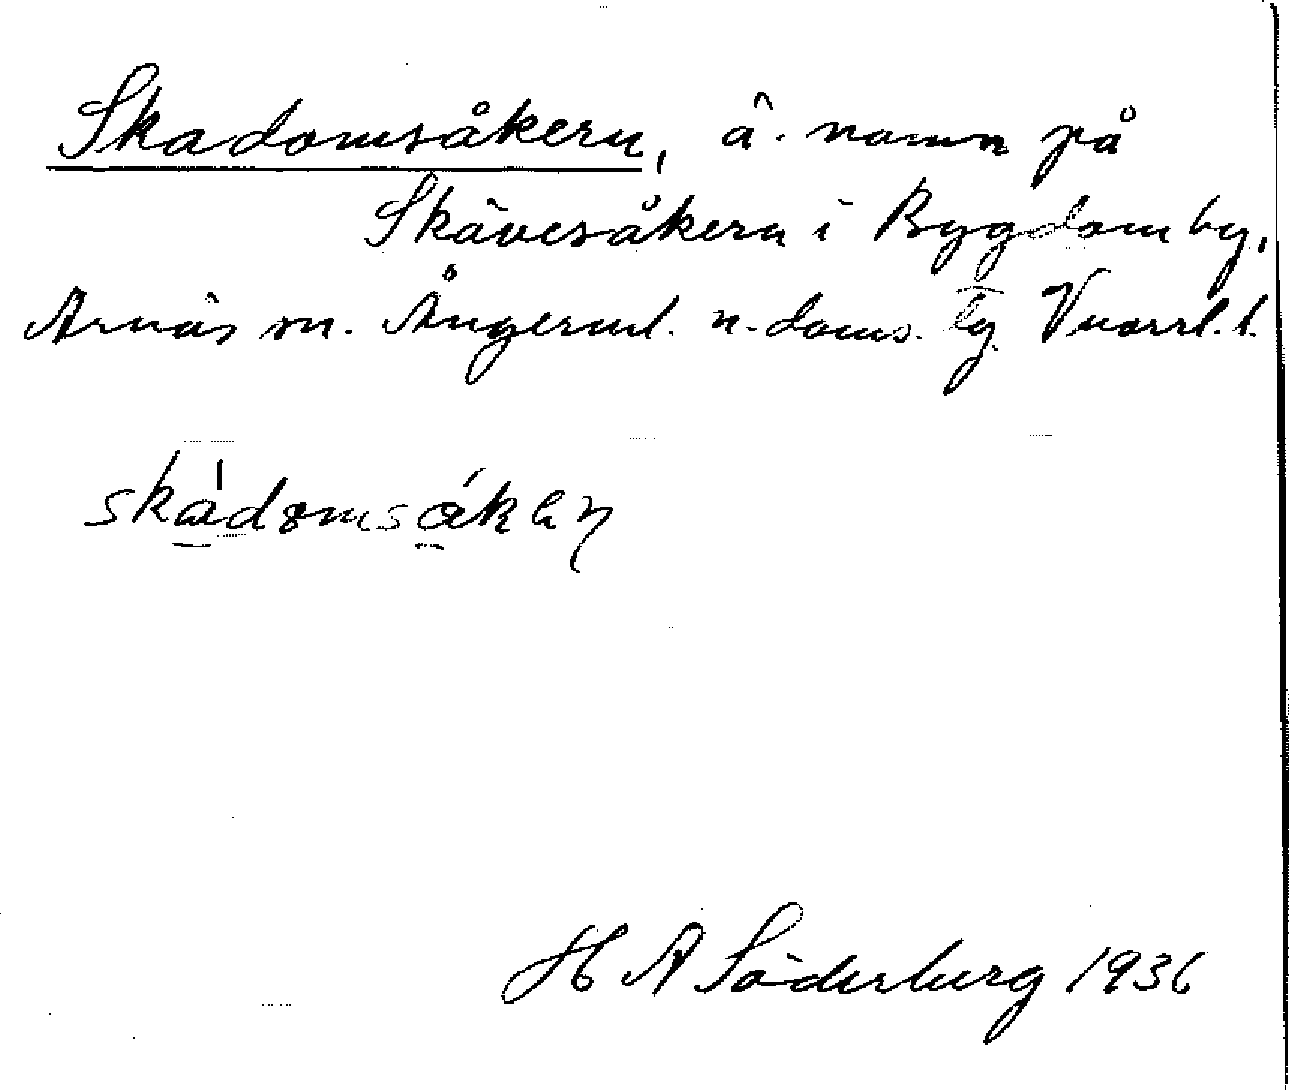 Skadomsåkern, ä. namn på
Skävesåkern i Bygdom by,
Arnäs sn. Ångerml. n. doms. tg. Vnorrl. l.
skådomsåkεŋ
H A Söderberg 1936